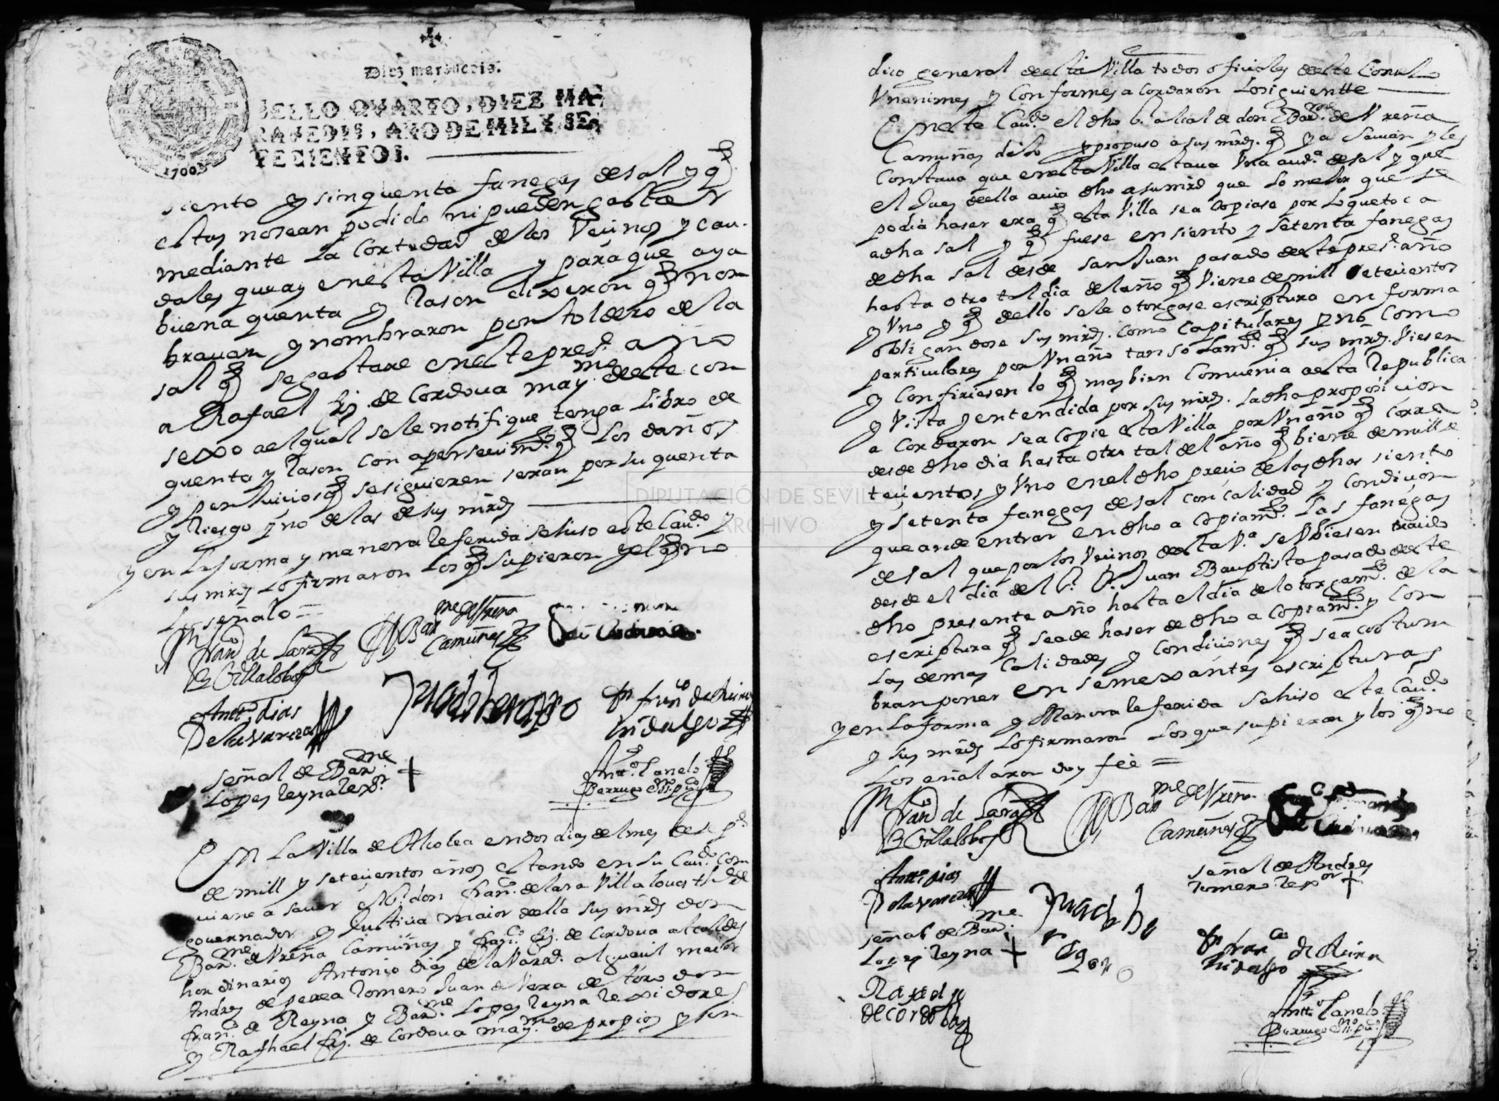 Diez maravedis.
SELLO QVARTO, DIEZ MA-
RAVEDIS, AÑO DE MIL Y SE-
TECIENTOS.
1700
siento y sinquenta fanegas de sal y q
estas no sean podido ni pueden gastar
mediante la cortedad de los Vecinos y cau-
dales que ay en esta Villa y para que aya
buena quenta y rason dixeron q nom
bravan y nombraron por toldero de la
sal q se gastare en este prest. año
a Rafael frz de Cordova may.mo deste con
sexo al qual se le notifique tenga libro de
quenta y rason con apersevim.to q los daños
y perjuicios q se siguieren seran por su quenta
y riesgo y no de las de sus mrds
y en la forma y manera referida se hiso este Cau.do y
sus mrds lo firmaron los q supieron y el q no
lo señalo =
fran.co de Lara
Villalobos
Bar.me de Vreña
Camuñas
Antt.o dias
De la vareza
fran.co de Reina
hidalgo
señal de Bar.me
Lopes reyna rex.or +
Antt.o Canelo
Berrugo
En La Villa de Alcolea en dos dias del mes de
de mill y setesientos años estando en su Cau.do Com
viene a saver el S. don fran.co de lara Villalovos
governador y Justicia maior della sus mrds don
Bar.me de Vreña Camuñas y fran.co frz de Cordova alcaldes
hordinarios Antonio dias de la Varesa alguasil maior
Andres de perea romero Juan de Vera de Toro don
fran.co de Reyna y Bar.me Lopes reyna rexidores
y Raphael frz de Cordova may.mo de propios y sin
dico general desta Villa todos ofisiales deste Conselo
Vnanimes y Conformes acordaron lo siguientte
En este Cau.do el dho alcalde don Bar.me de Vreña
Camuñas dixo y propuso a sus mrds q ya savian y les
constava que en esta Villa estava Vna aud.a de sal y que
el Jues della avia dho a su mrd que lo mejor que se
podia haser era q esta Villa se a copiase por lo que toca
a dha sal y q fuese en siento y setenta fanegas
de dha sal desde san Juan pasado deste prest. año
hasta otro tal dia del año q Viene de mill setesientos
y Vno y q dello se le otorgase escriptura en forma
obligandose sus mrds como Capitulares y no como
particulares por Vn año tan solam.te q sus mrds viesen
y Confiriesen lo q mas bien Convenia a esta republica
y Vista y entendida por sus mrds la dha proposicion
a Cordaron se a Copie esta Villa por Vn año q corra
desde dho dia hasta otro tal del año q biene de mill se
tesientos y Vno en el dho presio de las dhas siento
y setenta fanegas de sal con calidad y condision
que ande entrar en dho a Copiam.to las fanegas
de sal que por los Vesinos desta V.a se Vbiesen traido
desde el dia de S.r S. Juan Bauptista pasado deste
dho presente año hasta el dia de lo torgam.to de la
escriptura q sea de haser de dho a Copiam.to y con
las demas Calidades y condiciones q se acostum
bran poner en semexantes escripturas
y en la forma y Manera referida se hiso este Cau.do
y sus mrds lo firmaron los que supieron y los q no
lo señalaron doy fee =
fran.co de Lara
Villalobos
Bar.me de Vreña
Camuñas
Antt.o dias
De la vareza
señal de Andres
romero rex.or +
señal de Bar.me
Lopes reyna +
fran.co de Reina
hidalgo
Rafael frz
de cordoba
Antt.o Canelo
Berrugo
DIPUTACIÓN DE SEVILLA
ARCHIVO